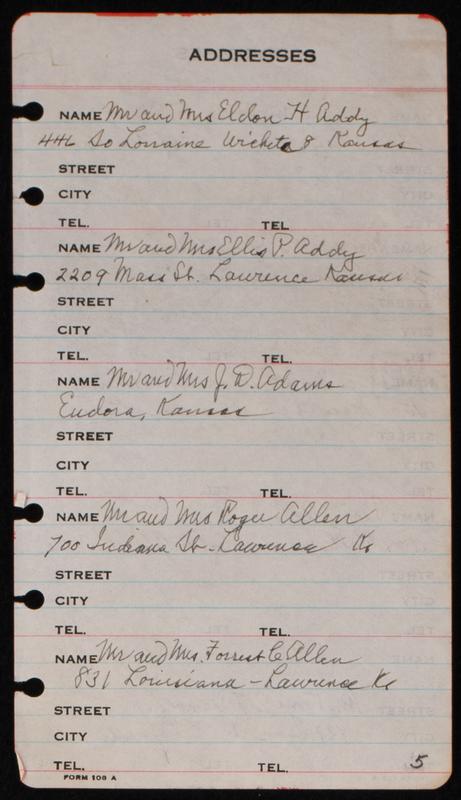 ADDRESSES
NAME Mr and Mrs Eldon H Addy
446 So Lorraine Wichita 8 Kansas
STREET
CITY
TEL. TEL
NAME Mr and Mrs Ellis P. Addy
2209 Mass St. Lawrence Kansas
STREET
CITY
TEL. TEL.
NAME Mr and Mrs J. D. Adams
Eudora, Kansas
STREET
CITY
TEL. TEL.
NAME Mr and Mrs Roger Allen
700 Indiana St - Lawrence Ks
STREET
CITY
TEL. TEL.
NAME Mr and Mrs. Forrest C Allen
831 Louisiana - Lawrence Ks
STREET
CITY
TEL. TEL. 5
FORM 106 A